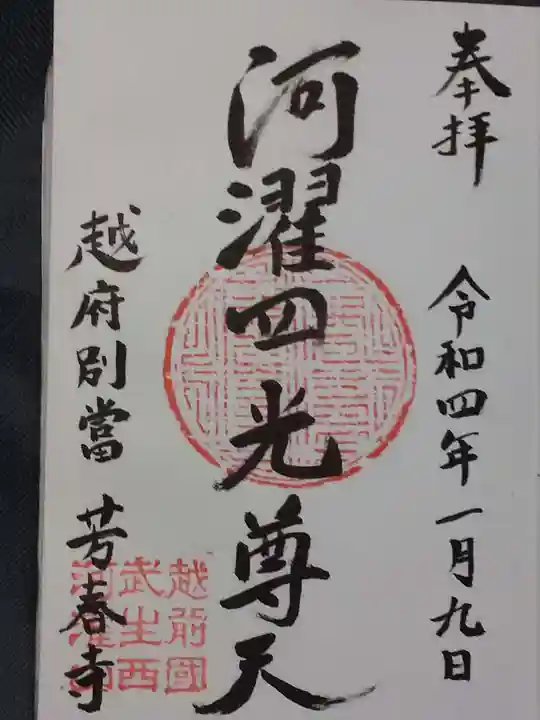 奉拝 令和四年一月九日
河濯四光尊天
越府別當 芳春寺
越前國
武生西
河濯山